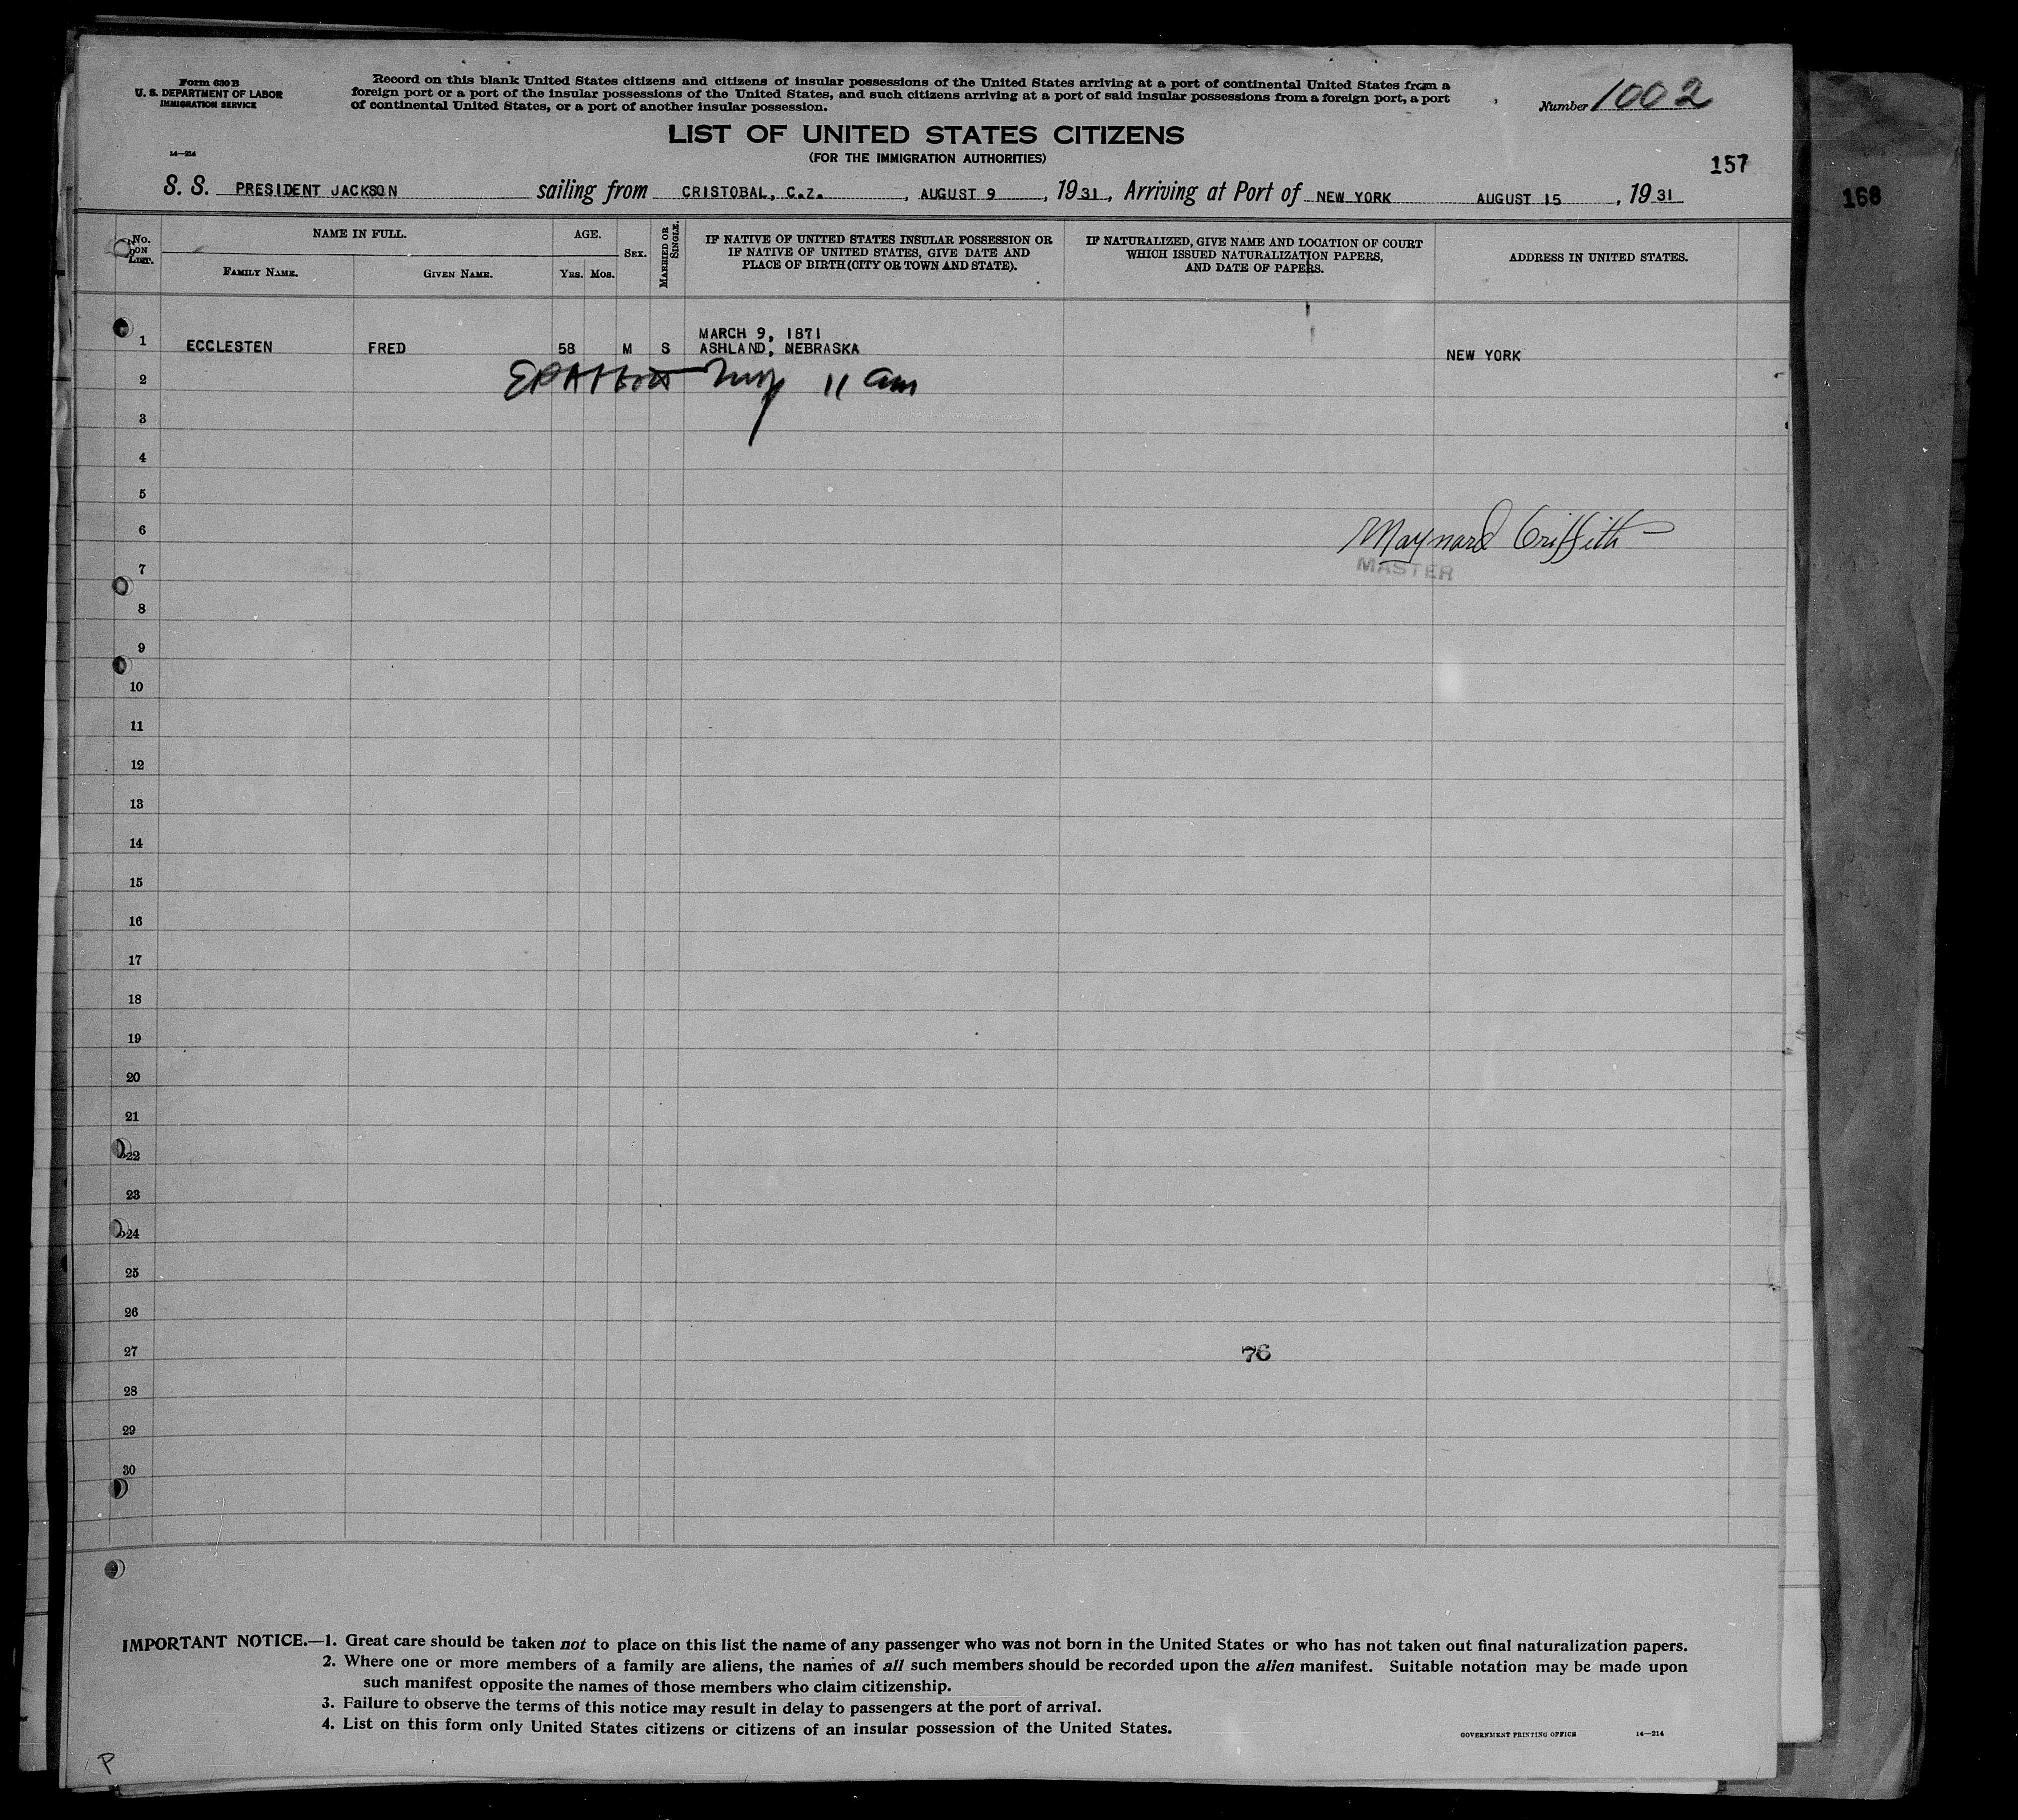 Form 630 B
U. S. DEPARTMENT OF LABOR
IMMIGRATION SERVICE
14—214
Record on this blank United States citizens and citizens of insular possessions of the United States arriving at a port of continental United States from a
foreign port or a port of the insular possessions of the United States, and such citizens arriving at a port of said insular possessions from a foreign port, a port
of continental United States, or a port of another insular possession.
Number 1002
LIST OF UNITED STATES CITIZENS
(FOR THE IMMIGRATION AUTHORITIES)
157
168
S. S. PRESIDENT JACKSON sailing from CRISTOBAL, C.Z. , AUGUST 9 , 1931 , Arriving at Port of NEW YORK AUGUST 15 , 1931
No. ON LIST.
NAME IN FULL.
FAMILY NAME.
GIVEN NAME.
AGE.
YRS.
MOS.
SEX.
MARRIED OR SINGLE.
IF NATIVE OF UNITED STATES INSULAR POSSESSION OR
IF NATIVE OF UNITED STATES, GIVE DATE AND
PLACE OF BIRTH (CITY OR TOWN AND STATE).
IF NATURALIZED, GIVE NAME AND LOCATION OF COURT
WHICH ISSUED NATURALIZATION PAPERS,
AND DATE OF PAPERS.
ADDRESS IN UNITED STATES.
MARCH 9, 1871
1 ECCLESTEN FRED 58 M S ASHLAND, NEBRASKA NEW YORK
2 11 am
3
4
5
6 Maynard Griffith
MASTER
7
8
9
10
11
12
13
14
15
16
17
18
19
20
21
22
23
24
25
26
27 76
28
29
30
IMPORTANT NOTICE.—1. Great care should be taken not to place on this list the name of any passenger who was not born in the United States or who has not taken out final naturalization papers.
2. Where one or more members of a family are aliens, the names of all such members should be recorded upon the alien manifest. Suitable notation may be made upon
such manifest opposite the names of those members who claim citizenship.
3. Failure to observe the terms of this notice may result in delay to passengers at the port of arrival.
4. List on this form only United States citizens or citizens of an insular possession of the United States.
GOVERNMENT PRINTING OFFICE 14—214
P